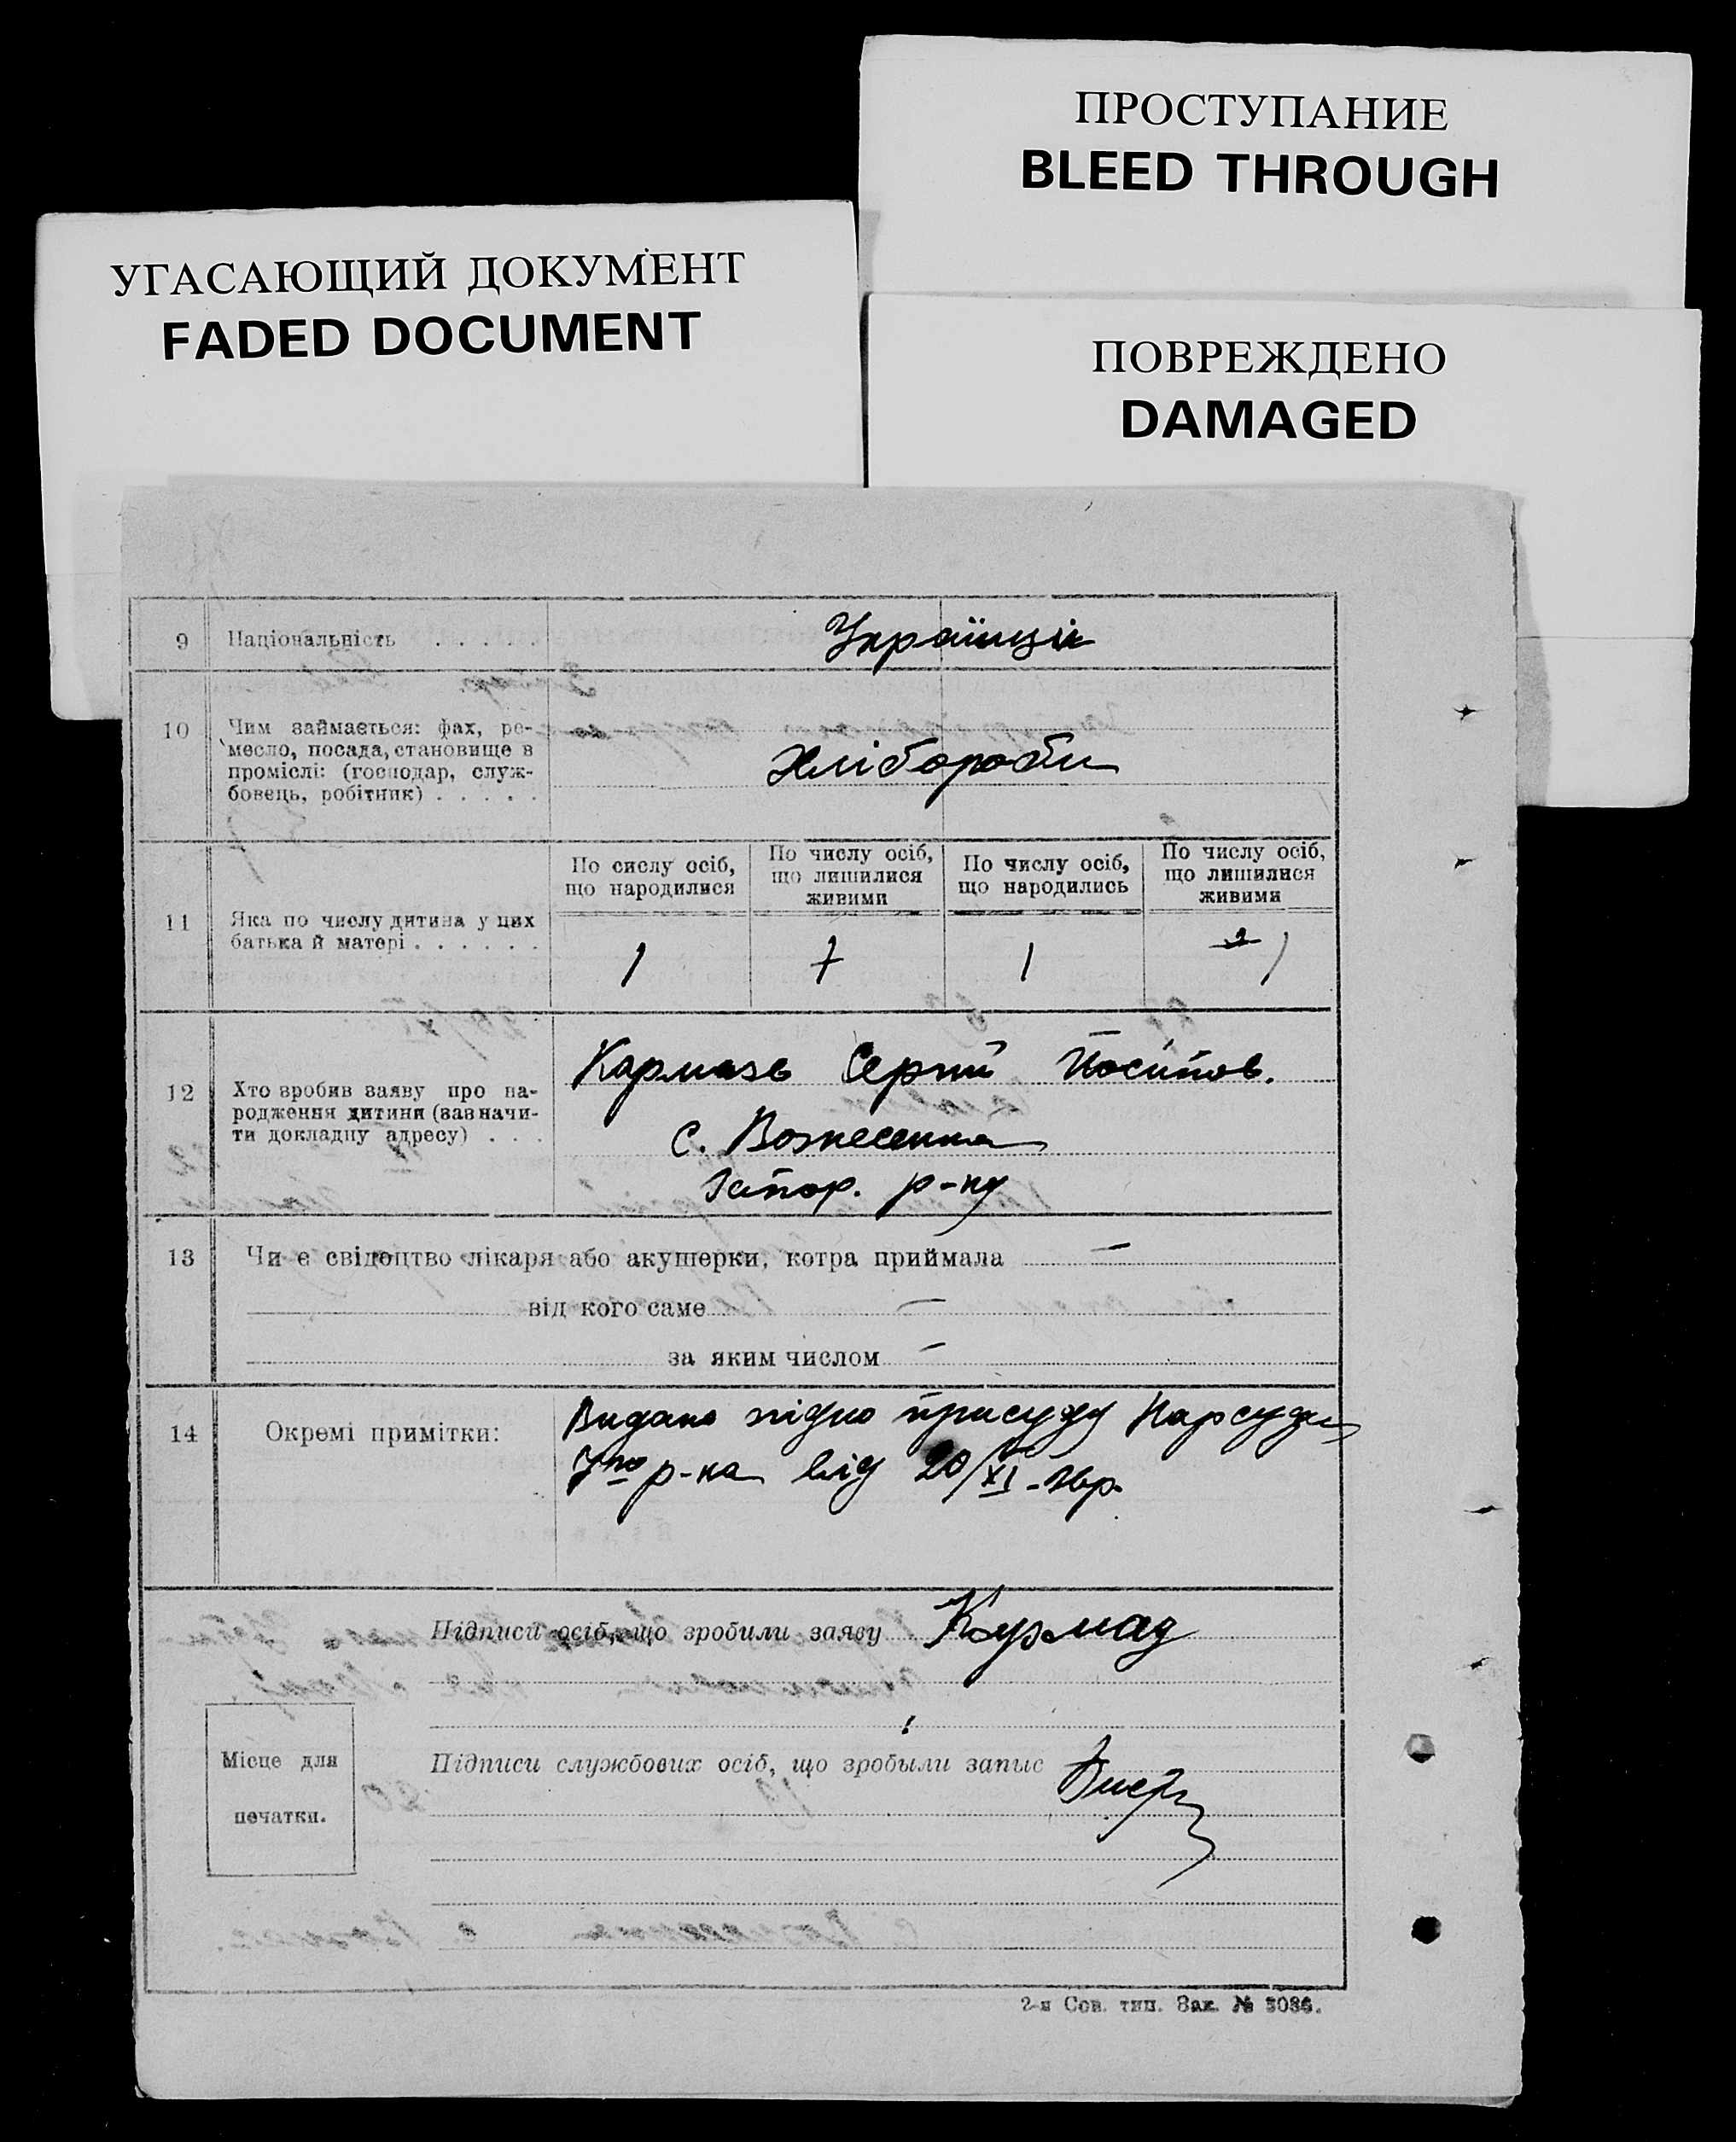 ПРОСТУПАНИЕ
BLEED THROUGH
УГАСАЮЩИЙ ДОКУМЕНТ
FADED DOCUMENT
ПОВРЕЖДЕНО
DAMAGED
9 Національність . . . . . Українці
10 Чим займається: фах, ре-
месло, посада, становище в
проміслі: (господар, служ-
бовець, робітник) . . . . .
Хлібороби
11 Яка по числу дитина у цих
батька й матері . . . . . .
По сислу осіб,
що народилися
По числу осіб,
що лишилися
живими
По числу осіб,
що народились
По числу осіб,
що лишилися
живими
1 1 1 1
12 Хто зробив заяву про на-
родження дитини (зазначи-
ти докладну адресу) . . .
Кармазь Сергій Йосипов.
с. Вознесенка
Запор. р-ну
13 Чи є свідоцтво лікаря або акушерки, котра приймала —
від кого саме —
за яким числом —
14 Окремі примітки:
Видано згідно присуду Нарсуда
р-на від 20/XI-
Підписи осіб, що зробили заяву
Місце для
печатки.
Підписи службових осіб, що зробыли запис
2-я Сов. тип. Зак. № 3086.